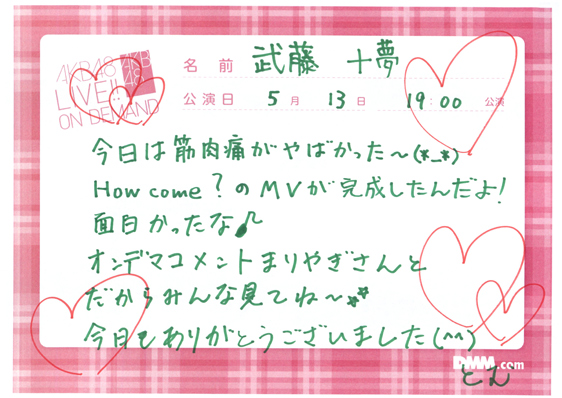 AKB48
LIVE!!
ON DEMAND
AKB
48
名前 武藤 十夢
公演日 5月 13日 19:00 公演
今日は筋肉痛がやばかった〜(*_*)
How come?のMVが完成したんだよ!
面白かったな♪
オンデマコメントまりやぎさんと
だからみんな見てね〜
今日もありがとうございました(^^)
DMM.com
とむ